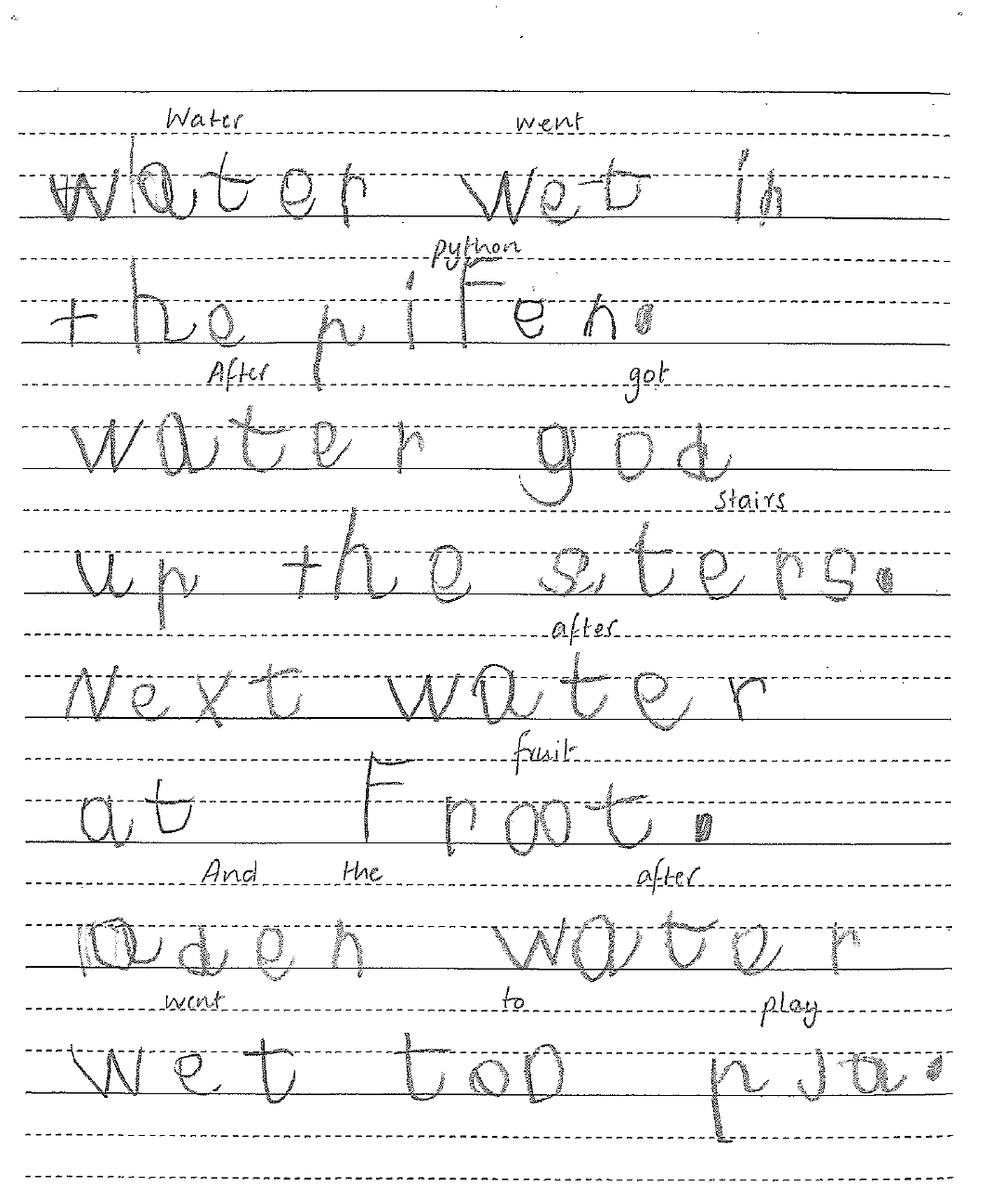 Water went
water wet in
python
the piFen.
After got
water god
stairs
up the sters.
after
Next water
fruit
at Froot.
And the after
aden water
went to play
wet too pja.